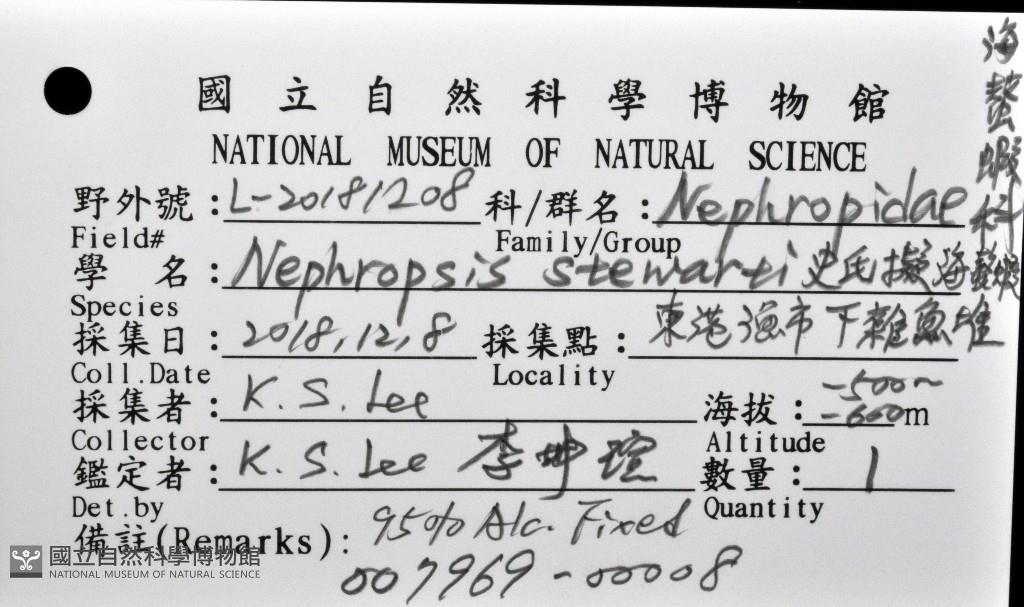 國立自然科學博物館
NATIONAL MUSEUM OF NATURAL SCIENCE
野外號：L-20181208 科/群名：Nephropidae 海螯蝦科
Field# Family/Group
學 名：Nephropsis stewarti 史氏擬海螯蝦
Species
採集日：2018,12,8 採集點：東港漁市下雜魚堆
Coll.Date Locality
採集者：K. S. Lee 海拔：-500~-600m
Collector Altitude
鑑定者：K. S. Lee 李坤瑄 數量：1
Det.by Quantity
備註(Remarks)：95% Alc. Fixed
007969-00008
國立自然科學博物館
NATIONAL MUSEUM OF NATURAL SCIENCE